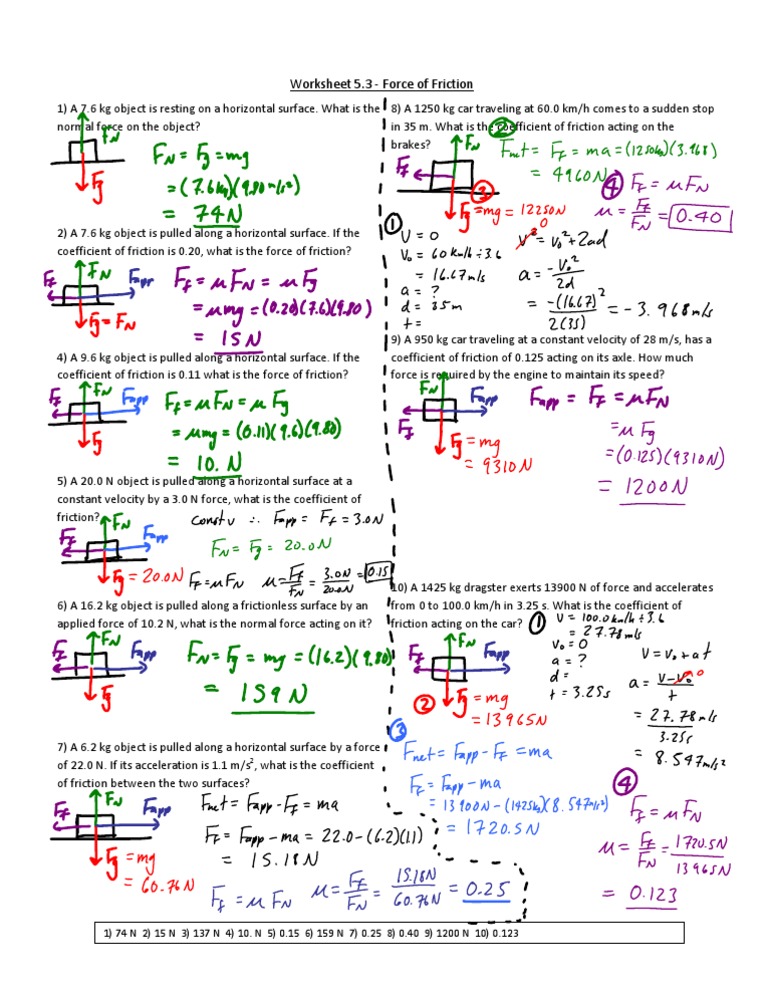 Worksheet 5.3 - Force of Friction
1) A 7.6 kg object is resting on a horizontal surface. What is the
normal force on the object?
FN
Fg
FN = Fg = mg
= (7.6kg)(9.80 m/s²)
= 74N
2) A 7.6 kg object is pulled along a horizontal surface. If the
coefficient of friction is 0.20, what is the force of friction?
Ff
FN
Fapp
Fg = FN
Ff = μFN = μFg
= μmg = (0.20)(7.6)(9.80)
= 15N
4) A 9.6 kg object is pulled along a horizontal surface. If the
coefficient of friction is 0.11 what is the force of friction?
Ff
FN
Fapp
Fg
Ff = μFN = μFg
= μmg = (0.11)(9.6)(9.80)
= 10. N
5) A 20.0 N object is pulled along a horizontal surface at a
constant velocity by a 3.0 N force, what is the coefficient of
friction?
const v ∴ Fapp = Ff = 3.0N
Ff
FN
Fapp
FN = Fg = 20.0N
Fg = 20.0N
Ff = μFN μ = Ff/FN = 3.0N/20.0N = 0.15
6) A 16.2 kg object is pulled along a frictionless surface by an
applied force of 10.2 N, what is the normal force acting on it?
Ff
FN
Fapp
Fg
FN = Fg = mg = (16.2)(9.80)
= 159N
7) A 6.2 kg object is pulled along a horizontal surface by a force
of 22.0 N. If its acceleration is 1.1 m/s², what is the coefficient
of friction between the two surfaces?
Ff
FN
Fapp
Fg = mg
= 60.76N
Fnet = Fapp - Ff = ma
Ff = Fapp - ma = 22.0 - (6.2)(1.1)
= 15.18N
Ff = μFN μ = Ff/FN = 15.18N/60.76N = 0.25
8) A 1250 kg car traveling at 60.0 km/h comes to a sudden stop
in 35 m. What is the coefficient of friction acting on the
brakes?
Ff
FN
③
Fg = mg = 12250N
② Fnet = Ff = ma = (1250kg)(3.968)
= 4960N
④ Ff = μFN
μ = Ff/FN = 0.40
①
V = 0
V₀ = 60 km/h ÷ 3.6
= 16.67m/s
a = ?
d = 35m
t =
0
V² = V₀² + 2ad
a = -V₀²/2d
= -(16.67)²/2(35) = -3.968m/s
9) A 950 kg car traveling at a constant velocity of 28 m/s, has a
coefficient of friction of 0.125 acting on its axle. How much
force is required by the engine to maintain its speed?
FN
Fapp
Ff
Fg = mg
= 9310N
Fapp = Ff = μFN
= μFg
= (0.125)(9310N)
= 1200N
10) A 1425 kg dragster exerts 13900 N of force and accelerates
from 0 to 100.0 km/h in 3.25 s. What is the coefficient of
friction acting on the car?
① V = 100.0 km/h ÷ 3.6
= 27.78m/s
V₀ = 0
a = ?
d =
t = 3.25s
V = V₀ + at
a = V-V₀/t
0
= 27.78m/s/3.25s
= 8.547m/s²
Ff
FN
Fapp
② Fg = mg
= 13965N
③
Fnet = Fapp - Ff = ma
Ff = Fapp - ma
= 13900N - (1425kg)(8.547m/s²)
= 1720.5N
④
Ff = μFN
μ = Ff/FN = 1720.5N/13965N
= 0.123
1) 74 N 2) 15 N 3) 137 N 4) 10. N 5) 0.15 6) 159 N 7) 0.25 8) 0.40 9) 1200 N 10) 0.123